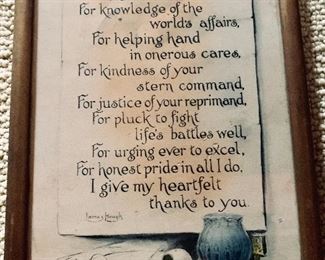 For knowledge of the
world's affairs,
For helping hand
in onerous cares,
For kindness of your
stern command,
For justice of your reprimand,
For pluck to fight
life's battles well,
For urging ever to excel,
For honest pride in all I do,
I give my heartfelt
thanks to you.